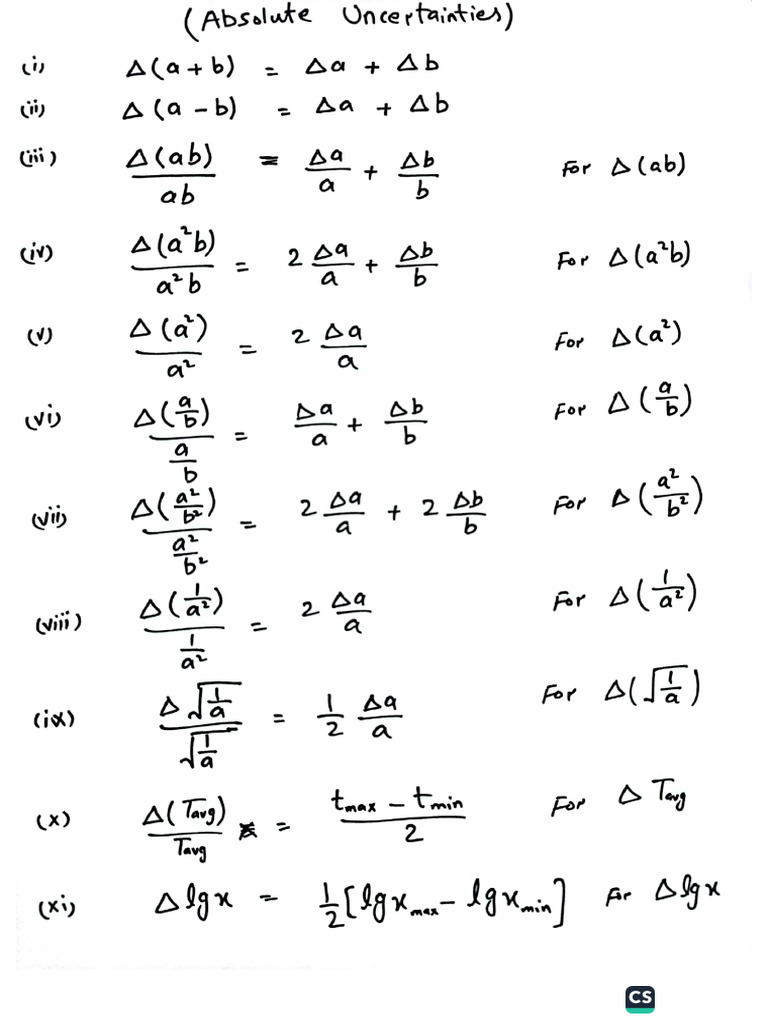 (Absolute Uncertainties)
(i) Δ(a + b) = Δa + Δb
(ii) Δ(a - b) = Δa + Δb
(iii) Δ(ab)/ab = Δa/a + Δb/b For Δ(ab)
(iv) Δ(a²b)/a²b = 2 Δa/a + Δb/b For Δ(a²b)
(v) Δ(a²)/a² = 2 Δa/a For Δ(a²)
(vi) Δ(a/b)/(a/b) = Δa/a + Δb/b For Δ(a/b)
(vii) Δ(a²/b²)/(a²/b²) = 2 Δa/a + 2 Δb/b For Δ(a²/b²)
(viii) Δ(1/a²)/(1/a²) = 2 Δa/a For Δ(1/a²)
(ix) Δ√(1/a)/√(1/a) = 1/2 Δa/a For Δ(√(1/a))
(x) Δ(Tavg)/Tavg = (tmax - tmin)/2 For Δ Tavg
(xi) Δ lg x = 1/2 [lg xmax - lg xmin] For Δ lg x
CS